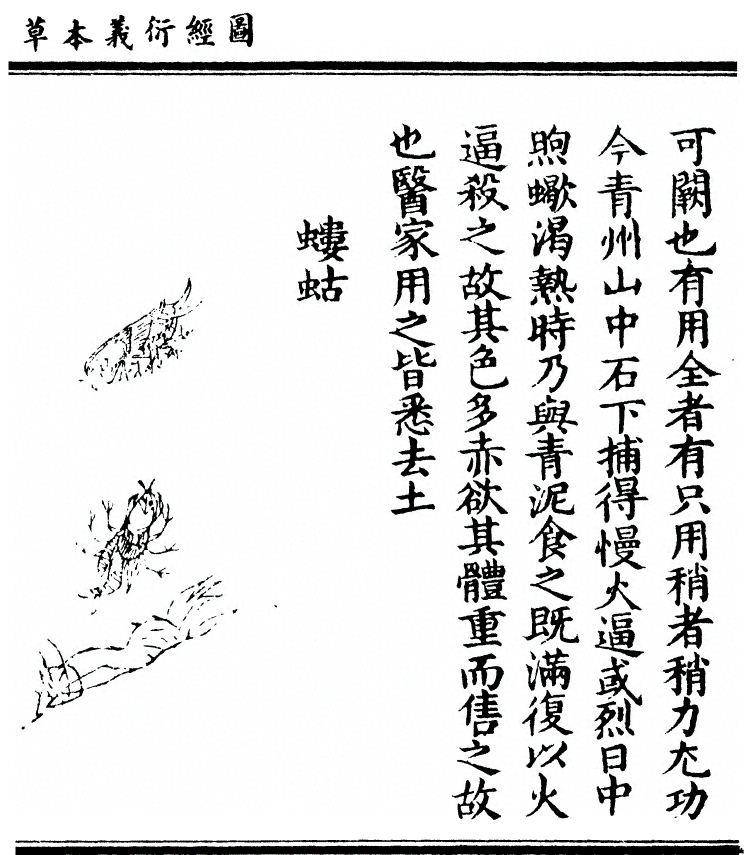 圖經衍義本草
可闕也有用全者有只用稍者稍力尤功
今青州山中石下捕得慢火逼或烈日中
煦蠍渴熱時乃與青泥食之既滿復以火
逼殺之故其色多赤欲其體重而售之故
也醫家用之皆悉去土
螻蛄